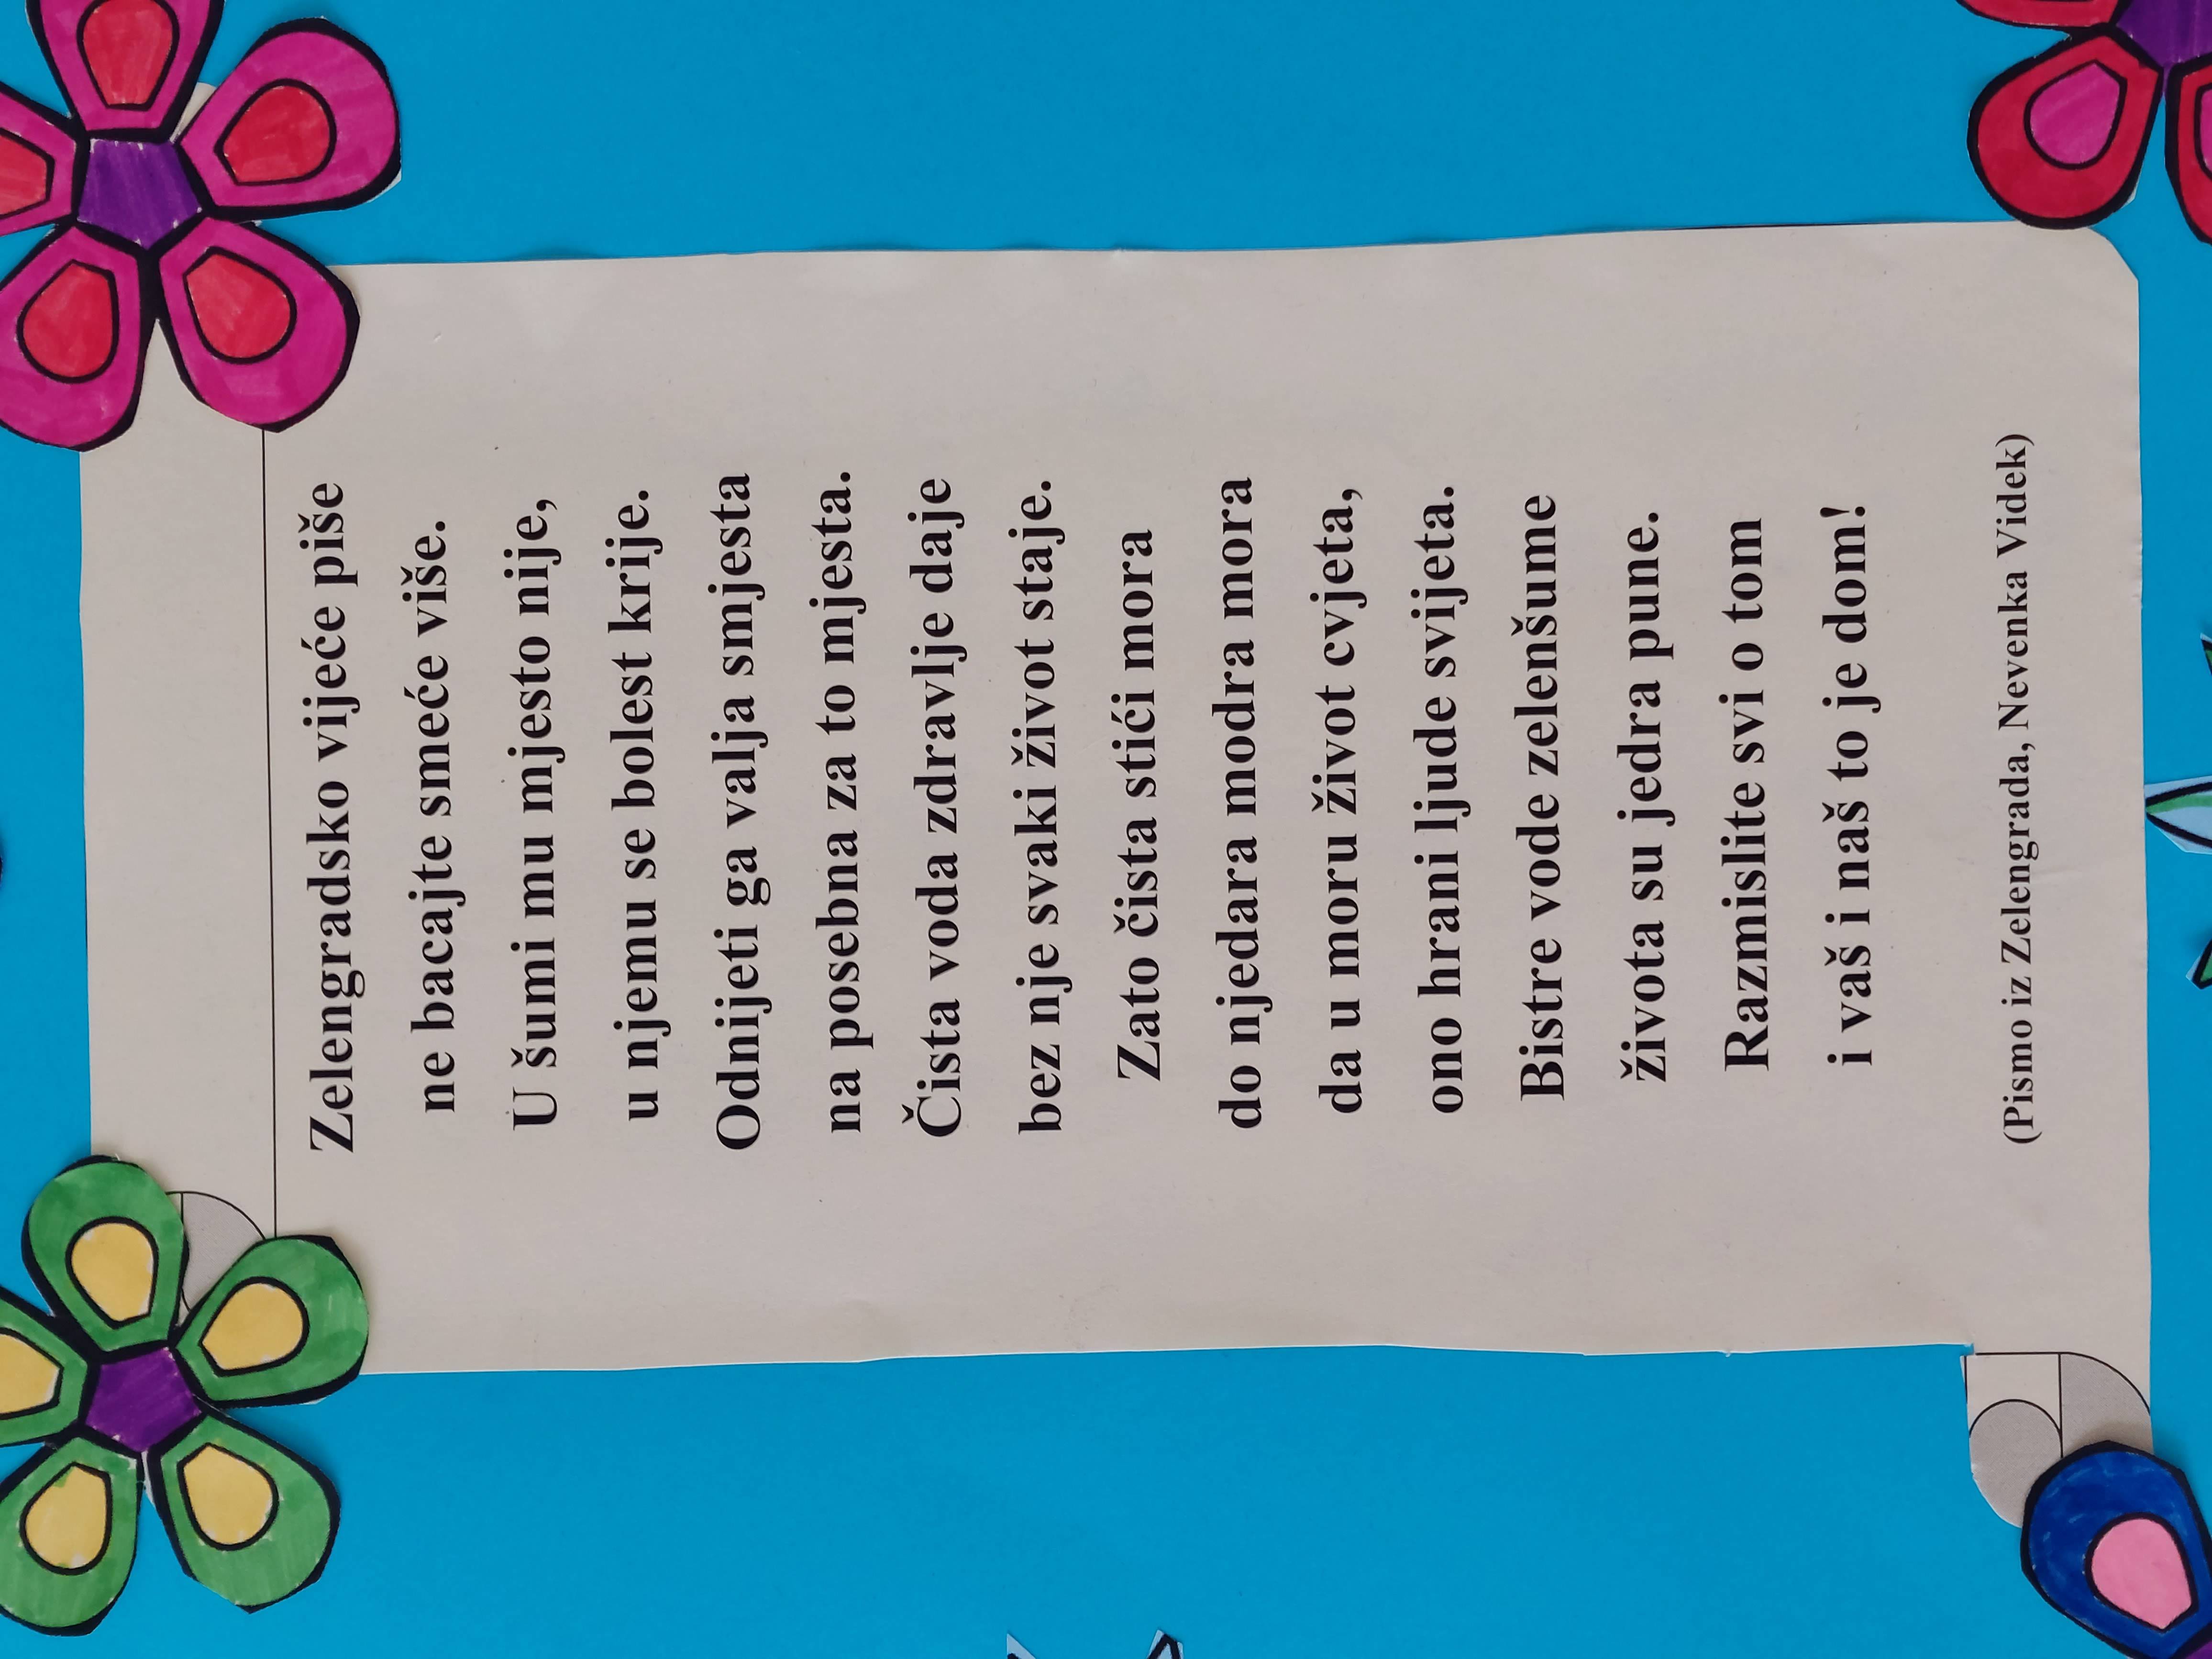 Zelengradsko vijeće piše
ne bacajte smeće više.
U šumi mu mjesto nije,
u njemu se bolest krije.
Odnijeti ga valja smjesta
na posebna za to mjesta.
Čista voda zdravlje daje
bez nje svaki život staje.
Zato čista stići mora
do njedara modra mora
da u moru život cvjeta,
ono hrani ljude svijeta.
Bistre vode zelenšume
života su jedra pune.
Razmislite svi o tom
i vaš i naš to je dom!
(Pismo iz Zelengrada, Nevenka Videk)